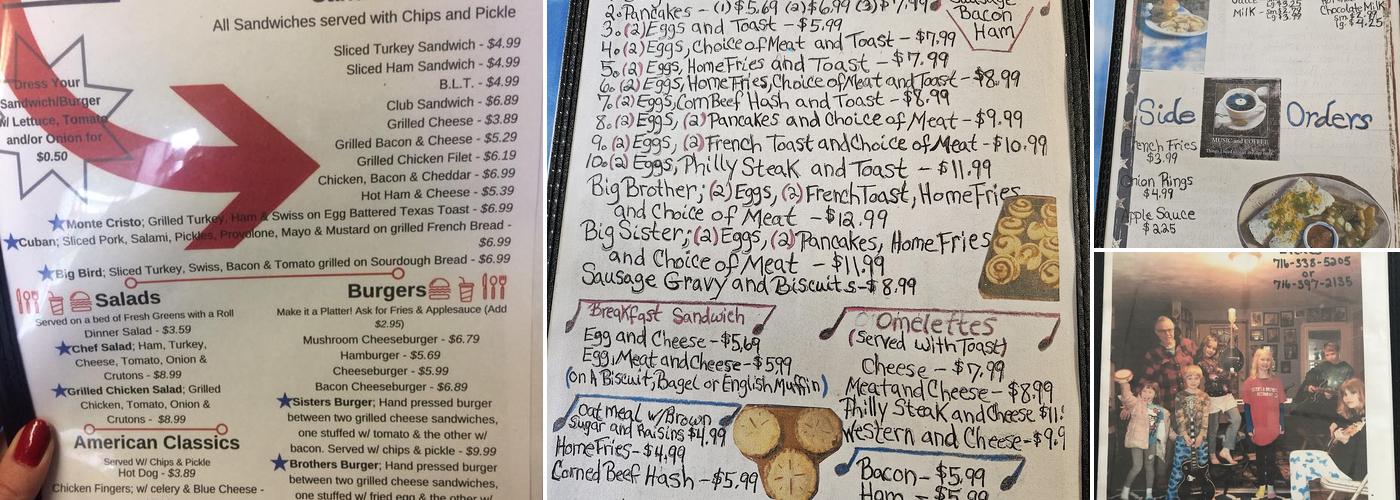 All Sandwiches served with Chips and Pickle
Sliced Turkey Sandwich - $4.99
Sliced Ham Sandwich - $4.99
B.L.T. - $4.99
Club Sandwich - $6.89
Grilled Cheese - $3.89
Grilled Bacon & Cheese - $5.29
Grilled Chicken Filet - $6.19
Chicken, Bacon & Cheddar - $6.99
Hot Ham & Cheese - $5.39
Dress Your
Sandwich/Burger
w/ Lettuce, Tomato
and/or Onion for
$0.50
Monte Cristo; Grilled Turkey, Ham & Swiss on Egg Battered Texas Toast - $6.99
Cuban; Sliced Pork, Salami, Pickles, Provolone, Mayo & Mustard on grilled French Bread -
$6.99
Big Bird; Sliced Turkey, Swiss, Bacon & Tomato grilled on Sourdough Bread - $6.99
Salads
Served on a bed of Fresh Greens with a Roll
Dinner Salad - $3.59
Chef Salad; Ham, Turkey,
Cheese, Tomato, Onion &
Crutons - $8.99
Grilled Chicken Salad; Grilled
Chicken, Tomato, Onion &
Crutons - $8.99
American Classics
Served W/ Chips & Pickle
Hot Dog - $3.89
Chicken Fingers; w/ celery & Blue Cheese -
Burgers
Make it a Platter! Ask for Fries & Applesauce (Add
$2.95)
Mushroom Cheeseburger - $6.79
Hamburger - $5.69
Cheeseburger - $5.99
Bacon Cheeseburger - $6.89
Sisters Burger; Hand pressed burger
between two grilled cheese sandwiches,
one stuffed w/ tomato & the other w/
bacon. Served w/ chips & pickle - $9.99
Brothers Burger; Hand pressed burger
between two grilled cheese sandwiches,
one stuffed w/ fried egg & the other w/
2. Pancakes - (1) $5.69 (2) $6.99 (3) $7.99
3. (2) Eggs and Toast - $5.99
4. (2) Eggs, Choice of Meat and Toast - $7.99
5. (2) Eggs, Home Fries and Toast - $7.99
6. (2) Eggs, Home Fries, Choice of Meat and Toast - $8.99
7. (2) Eggs, Corn Beef Hash and Toast - $8.99
8. (2) Eggs, (2) Pancakes and Choice of Meat - $9.99
9. (2) Eggs, (2) French Toast and Choice of Meat - $10.99
10. (2) Eggs, Philly Steak and Toast - $11.99
Big Brother; (2) Eggs, (2) French Toast, Home Fries
and Choice of Meat - $12.99
Big Sister; (2) Eggs, (2) Pancakes, Home Fries
and Choice of Meat - $11.99
Sausage Gravy and Biscuits - $8.99
Sausage
Bacon
Ham
Breakfast Sandwich
Egg and Cheese - $5.69
Egg, Meat and Cheese - $5.99
(on A Biscuit, Bagel or English Muffin)
Oatmeal w/ Brown
Sugar and Raisins $4.99
Home Fries - $4.99
Corned Beef Hash - $5.99
Omelettes
(Served with Toast)
Cheese - $7.99
Meat and Cheese - $8.99
Philly Steak and Cheese $11.
Western and Cheese - $9.9
Bacon - $5.99
Ham - $5.99
Milk -
Chocolate Milk
lg. $4.25
Side Orders
French Fries
$3.99
Onion Rings
$4.99
Apple Sauce
$2.25
MUSIC and COFFEE
716-338-5205
or
716-397-2135